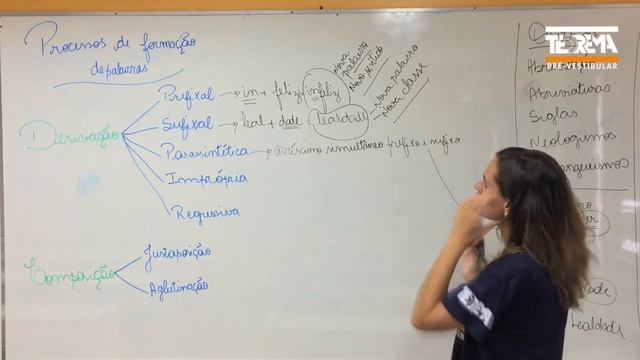 Processos de formação
de palavras
Derivação
Prefixal → in + feliz = infeliz
Nova palavra
Novo sentido
Sufixal → leal + dade = lealdade
Nova palavra
Nova classe
Parassintética → acréscimo simultâneo prefixo e sufixo
Imprópria
Regressiva
Composição
Justaposição
Aglutinação
TEOREMA
PRÉ-VESTIBULAR
Abreviaturas
Siglas
Neologismos
dade
lealdade